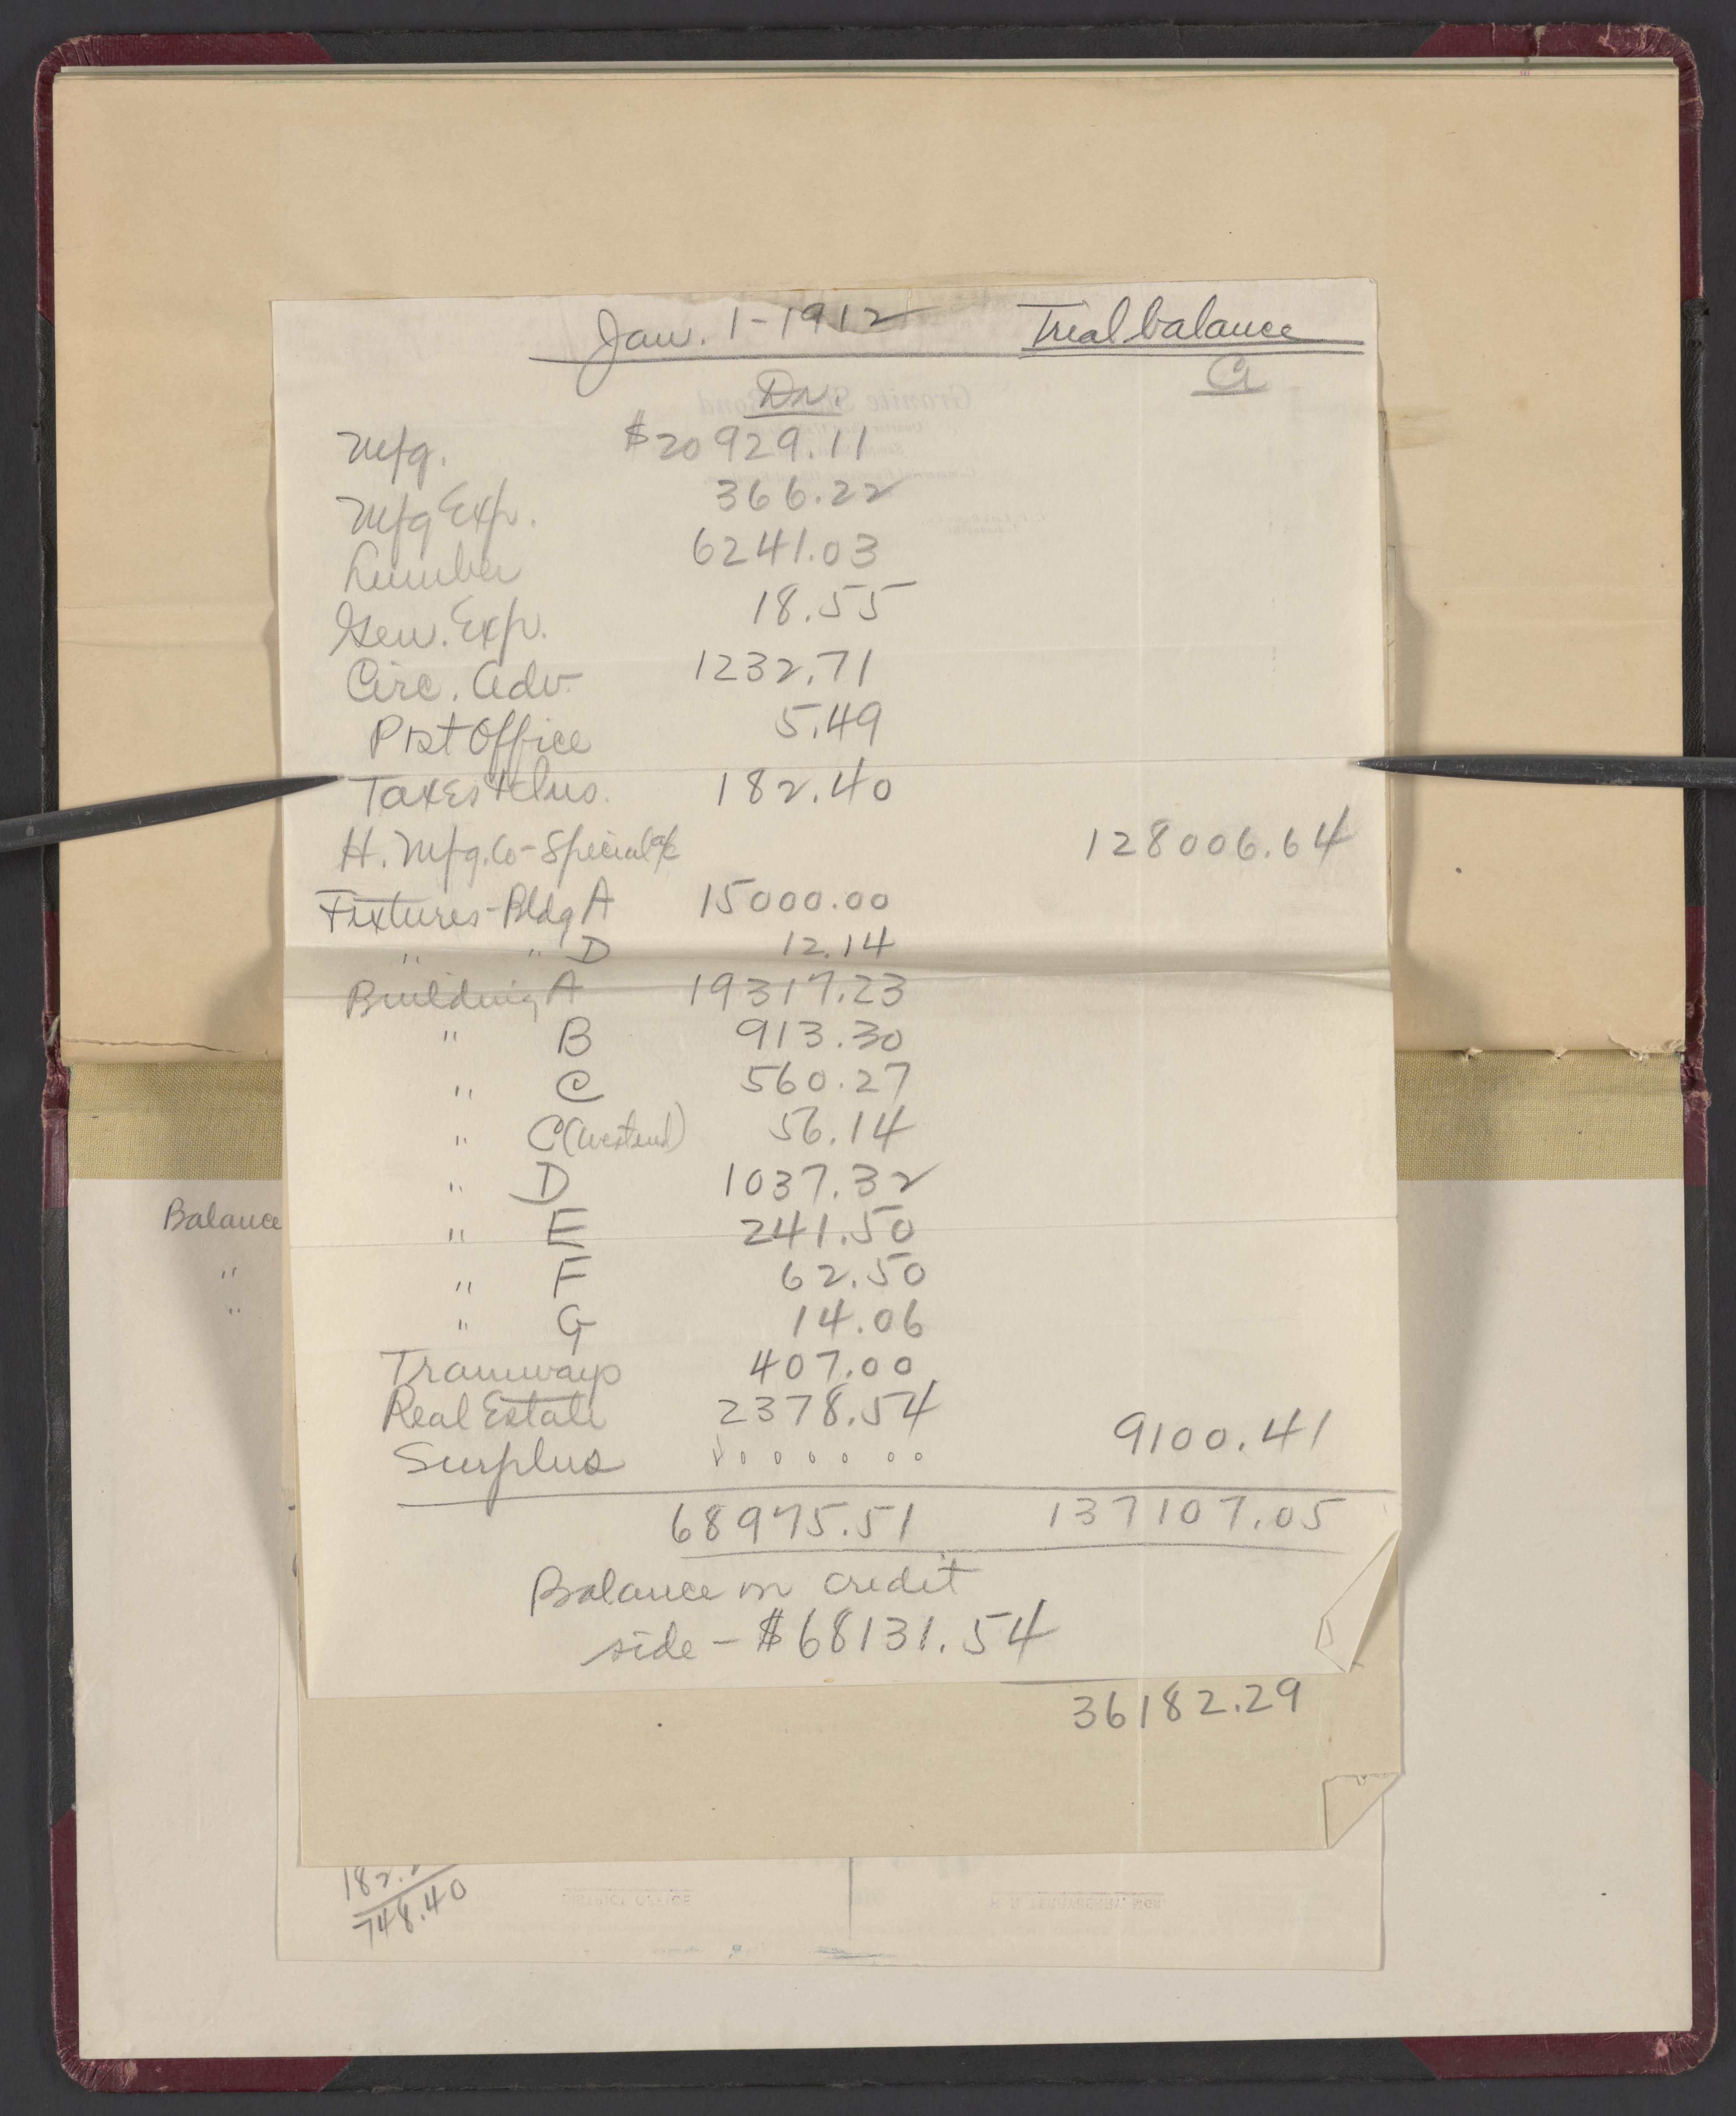 Jan. 1-1912 Trial balance
Dr. Cr
Mfg. $20929.11
Mfg Exp. 366.22
Lumber 6241.03
Gen. Exp. 18.55
Circ. Adv. 1232.71
Post Office 5.49
Taxes & Ins. 182.40
H. Mfg. Co - Special a/c 128006.64
Fixtures - Bldg A 15000.00
" " D 12.14
Building A 19317.23
" B 913.30
" C 560.27
" C (West end) 56.14
" D 1037.32
" E 241.50
" F 62.50
" G 14.06
Tramways 407.00
Real Estate 2378.54
Surplus 9100.41
68975.51 137107.05
Balance on credit
side - $68131.54
36182.29
Balance
"
"
182.
748.40
DISTRICT OFFICE